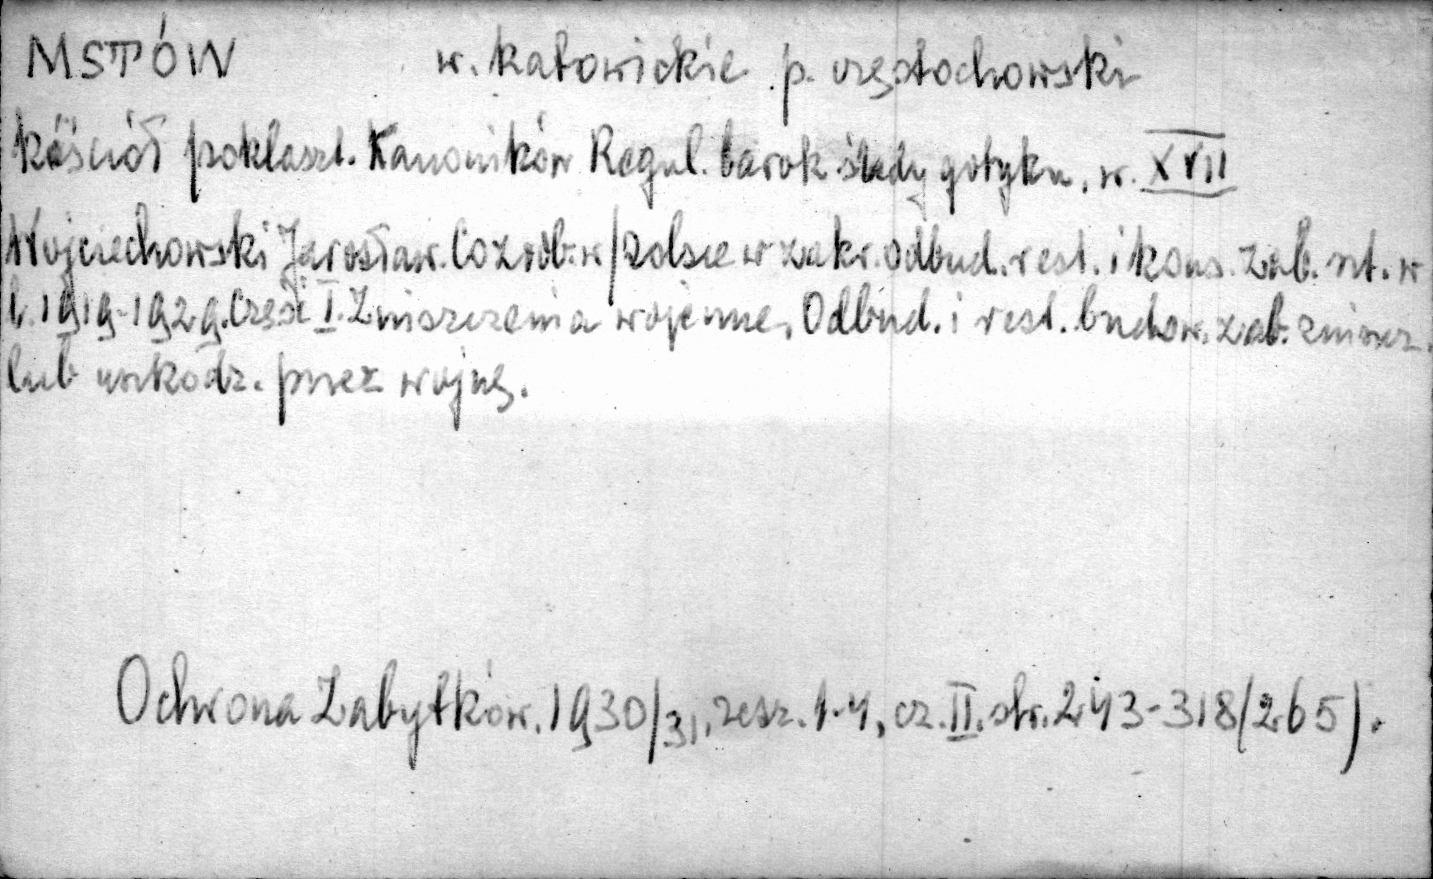 MSTÓW w. katowickie p. częstochowski
kościół poklaszt. Kanoników Regul. barok ślady gotyku, w. XVII
Wojciechowski Jarosław. Co zrob. w Polsce w zakr. odbud. rest. i kons. zab. szt. w
l. 1919-1929. Część I. Zniszczenia wojenne. Odbud. i rest. budow. zab. zniszcz.
lub uszkodz. przez wojnę.
Ochrona Zabytków. 1930/31, zesz. 1-4, cz. II. str. 243-318 (265).